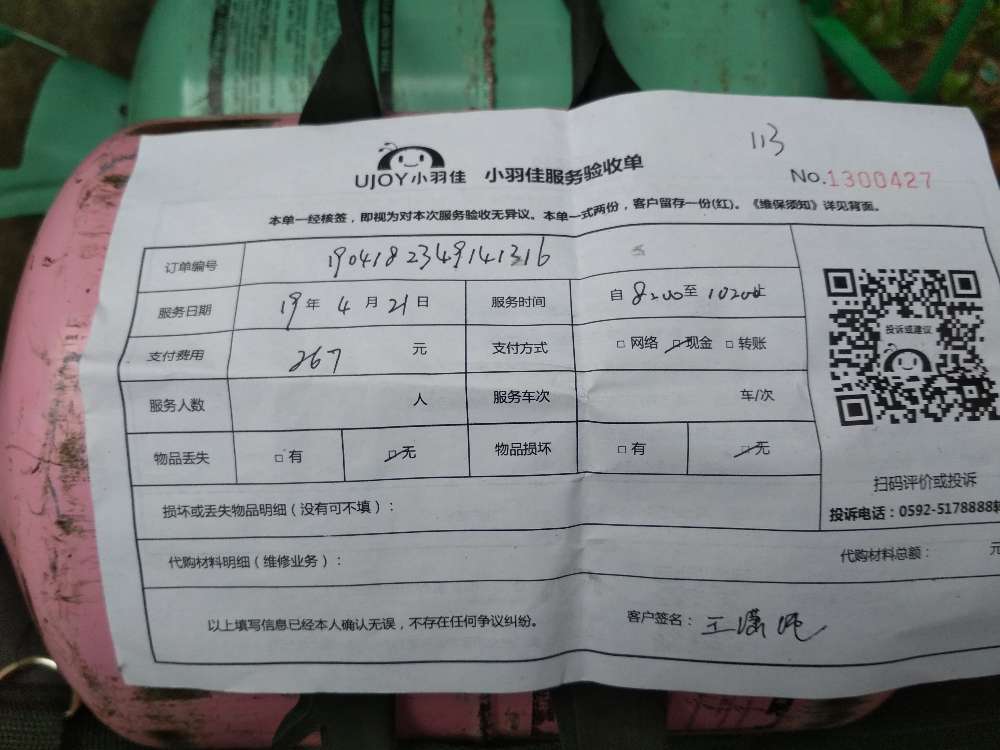 113
UJOY小羽佳 小羽佳服务验收单
No.1300427
本单一经核签，即视为对本次服务验收无异议。本单一式两份，客户留存一份(红)。《维保须知》详见背面。
订单编号 1904182349141316
服务日期 19年4月21日 服务时间 自8:00至10:00止
支付费用 267元 支付方式 □网络 □现金 □转账
服务人数 人 服务车次 车/次
物品丢失 □有 □无 物品损坏 □有 □无
投诉或建议
扫码评价或投诉
投诉电话：0592-5178888转
损坏或丢失物品明细（没有可不填）：
代购材料明细（维修业务）： 代购材料总额： 元
以上填写信息已经本人确认无误，不存在任何争议纠纷。 客户签名：王潇